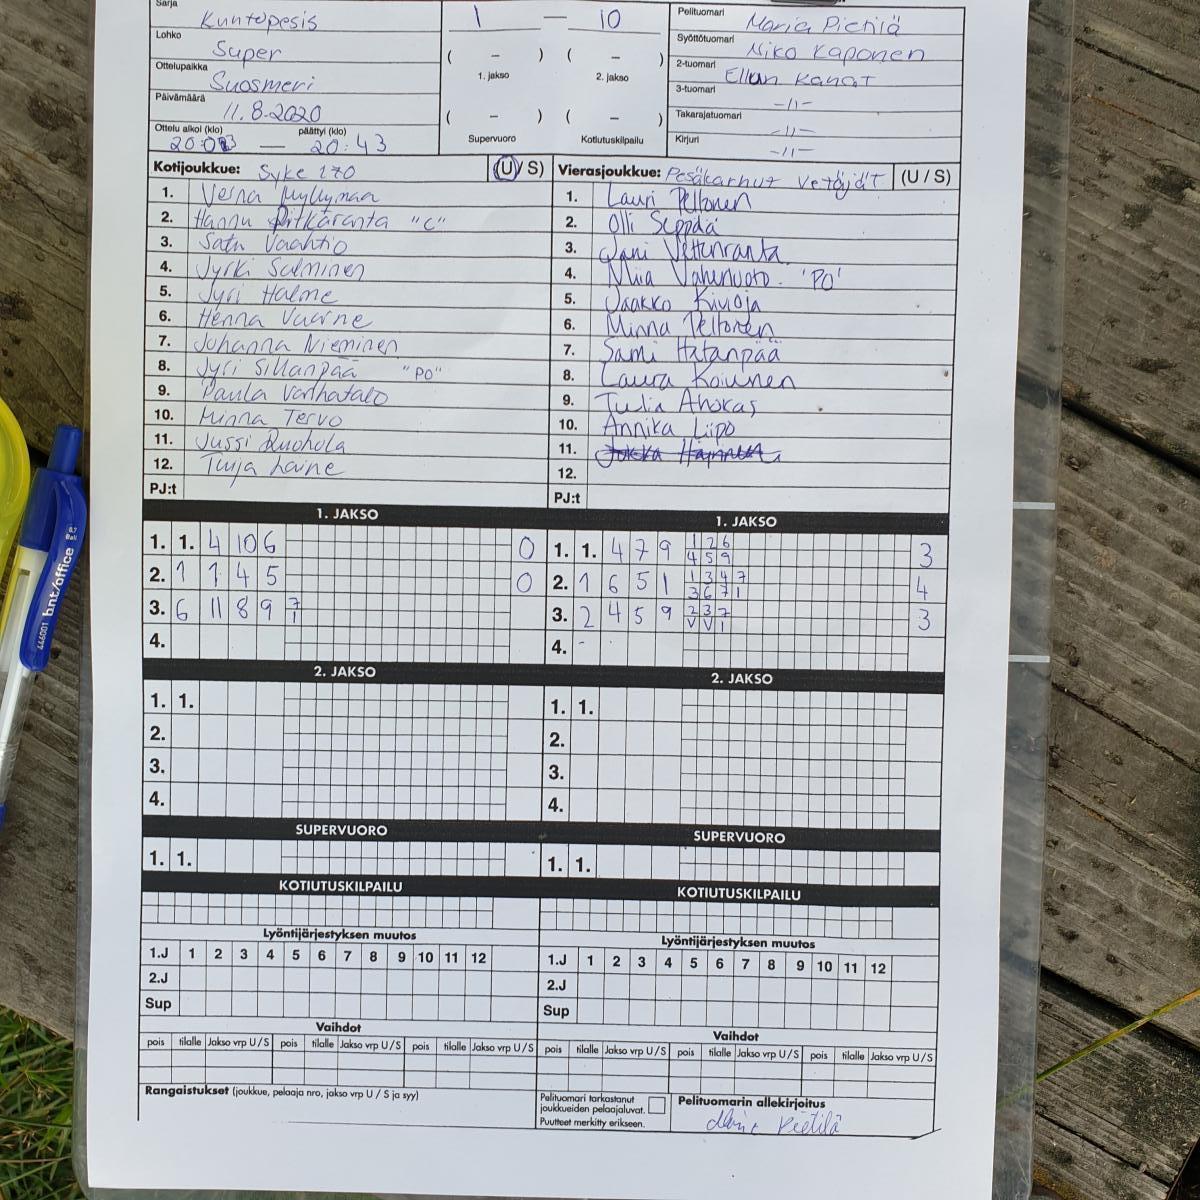 Sarja Kuntopesis
Lohko Super
Ottelupaikka Suosmeri
Päivämäärä 11.8-2020
Ottelu alkoi (klo) päättyi (klo)
— 20:43
1 — 10
( – ) ( – )
1. jakso 2. jakso
( – ) ( – )
Supervuoro Kotiutuskilpailu
Pelituomari Maria Pietilä
Syöttötuomari Niko Kaponen
2-tuomari Ellun Kanat
3-tuomari -11-
Takarajatuomari -11-
Kirjuri -11-
Kotijoukkue: Syke 170 (U / S)
1. Verna Myllymaa
2. Hannu Pitkäranta "C"
3. Satu Vaahtio
4. Jyrki Salminen
5. Jyri Halme
6. Henna Vuorne
7. Johanna Nieminen
8. Jyri Sillanpää "PO"
9. Paula Varhatalo
10. Minna Tervo
11. Jussi Ruohola
12. Tuija Laine
PJ:t
Vierasjoukkue: Pesäkarhut Vetäjät (U / S)
1. Lauri Peltonen
2. Olli Seppä
3. Jani Vettenranta
4. Miia Vahenvoto 'PO'
5. Jaakko Kivioja
6. Minna Peltonen
7. Sami Hatanpää
8. Laura Koivunen
9. Tuulia Ahokas
10. Annika Liipo
11. Jukka
12.
PJ:t
1. JAKSO
1. 1. 4 10 6 0
2. 1 1 4 5 0
3. 6 11 8 9 7
1
4.
1. JAKSO
1. 1. 4 7 9 1 2 6 3
4 5 9
2. 1 6 5 1 1 3 4 7 4
3 6 7 1
3. 2 4 5 9 2 3 7 3
V V 1
4. -
2. JAKSO
1. 1.
2.
3.
4.
2. JAKSO
1. 1.
2.
3.
4.
SUPERVUORO
1. 1.
SUPERVUORO
1. 1.
KOTIUTUSKILPAILU
KOTIUTUSKILPAILU
Lyöntijärjestyksen muutos
1.J 1 2 3 4 5 6 7 8 9 10 11 12
2.J
Sup
Lyöntijärjestyksen muutos
1.J 1 2 3 4 5 6 7 8 9 10 11 12
2.J
Sup
Vaihdot
pois tilalle Jakso vrp U / S pois tilalle Jakso vrp U / S pois tilalle Jakso vrp U / S
Vaihdot
pois tilalle Jakso vrp U / S pois tilalle Jakso vrp U / S pois tilalle Jakso vrp U / S
Rangaistukset (joukkue, pelaaja nro, jakso vrp U / S ja syy)
Pelituomari tarkastanut
joukkueiden pelaajaluvat.
Puutteet merkitty erikseen.
Pelituomarin allekirjoitus
Maria Pietilä
bnt/office
446001
0.7
Ball